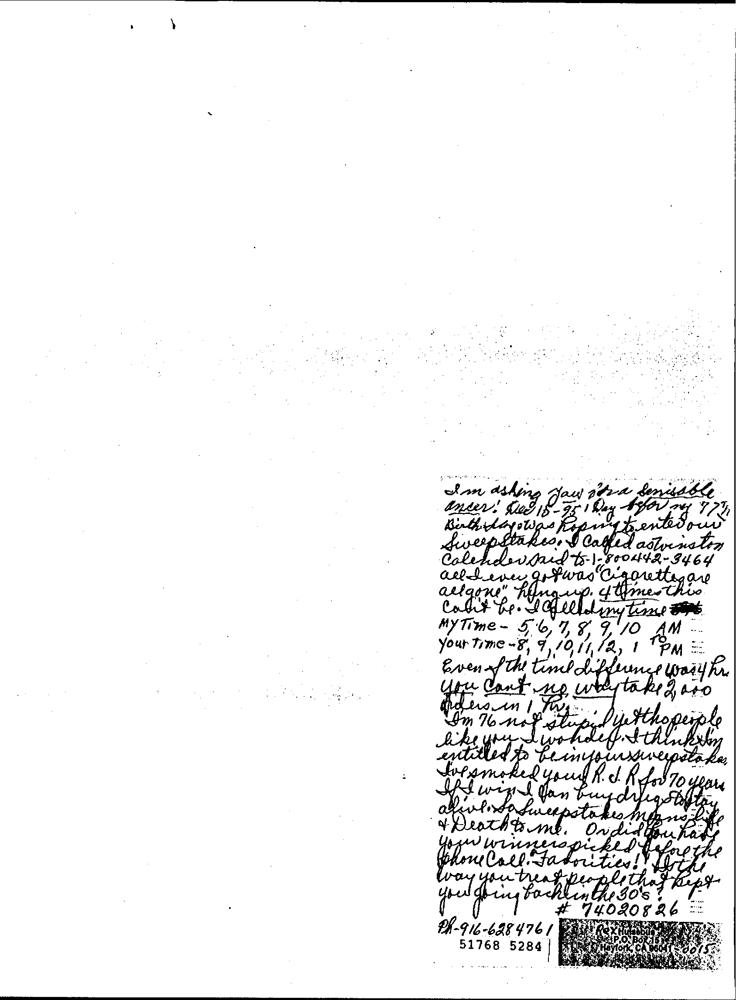 I'm asking you for a sensiable
ancer! Dec 15-95 1 Day befor my 77th
Birthday & was hoping to enter your
Sweepstakes. I called as Winston
Calender said to 1-800442-3464
all I ever got was "Cigarettes are
all gone" hung up. 4 times this
Can't be. I called my time
My Time - 5, 6, 7, 8, 9, 10 AM
Your Time - 8, 9, 10, 11, 12, 1 TO PM
Even if the time difference was 4 hr
you Cant no way take 2,000
orders in 1 hr.
I'm 76 not stupid yet tho people
like you I wonder. I think I'm
entitled to be in your sweepstakes
I've smoked your R.J.R for 70 years
If I win I can buy drugs to stay
alive. So Sweepstakes means life
& Death to me. Or did you have
your winners picked before the
phone Call. Favorities! Is the
way you treat people that kept
you going back in the 30's?
# 74020826
Ph-916-6284761
51768 5284
Rex
P.O. Box
Hayfork, CA 96041-0015